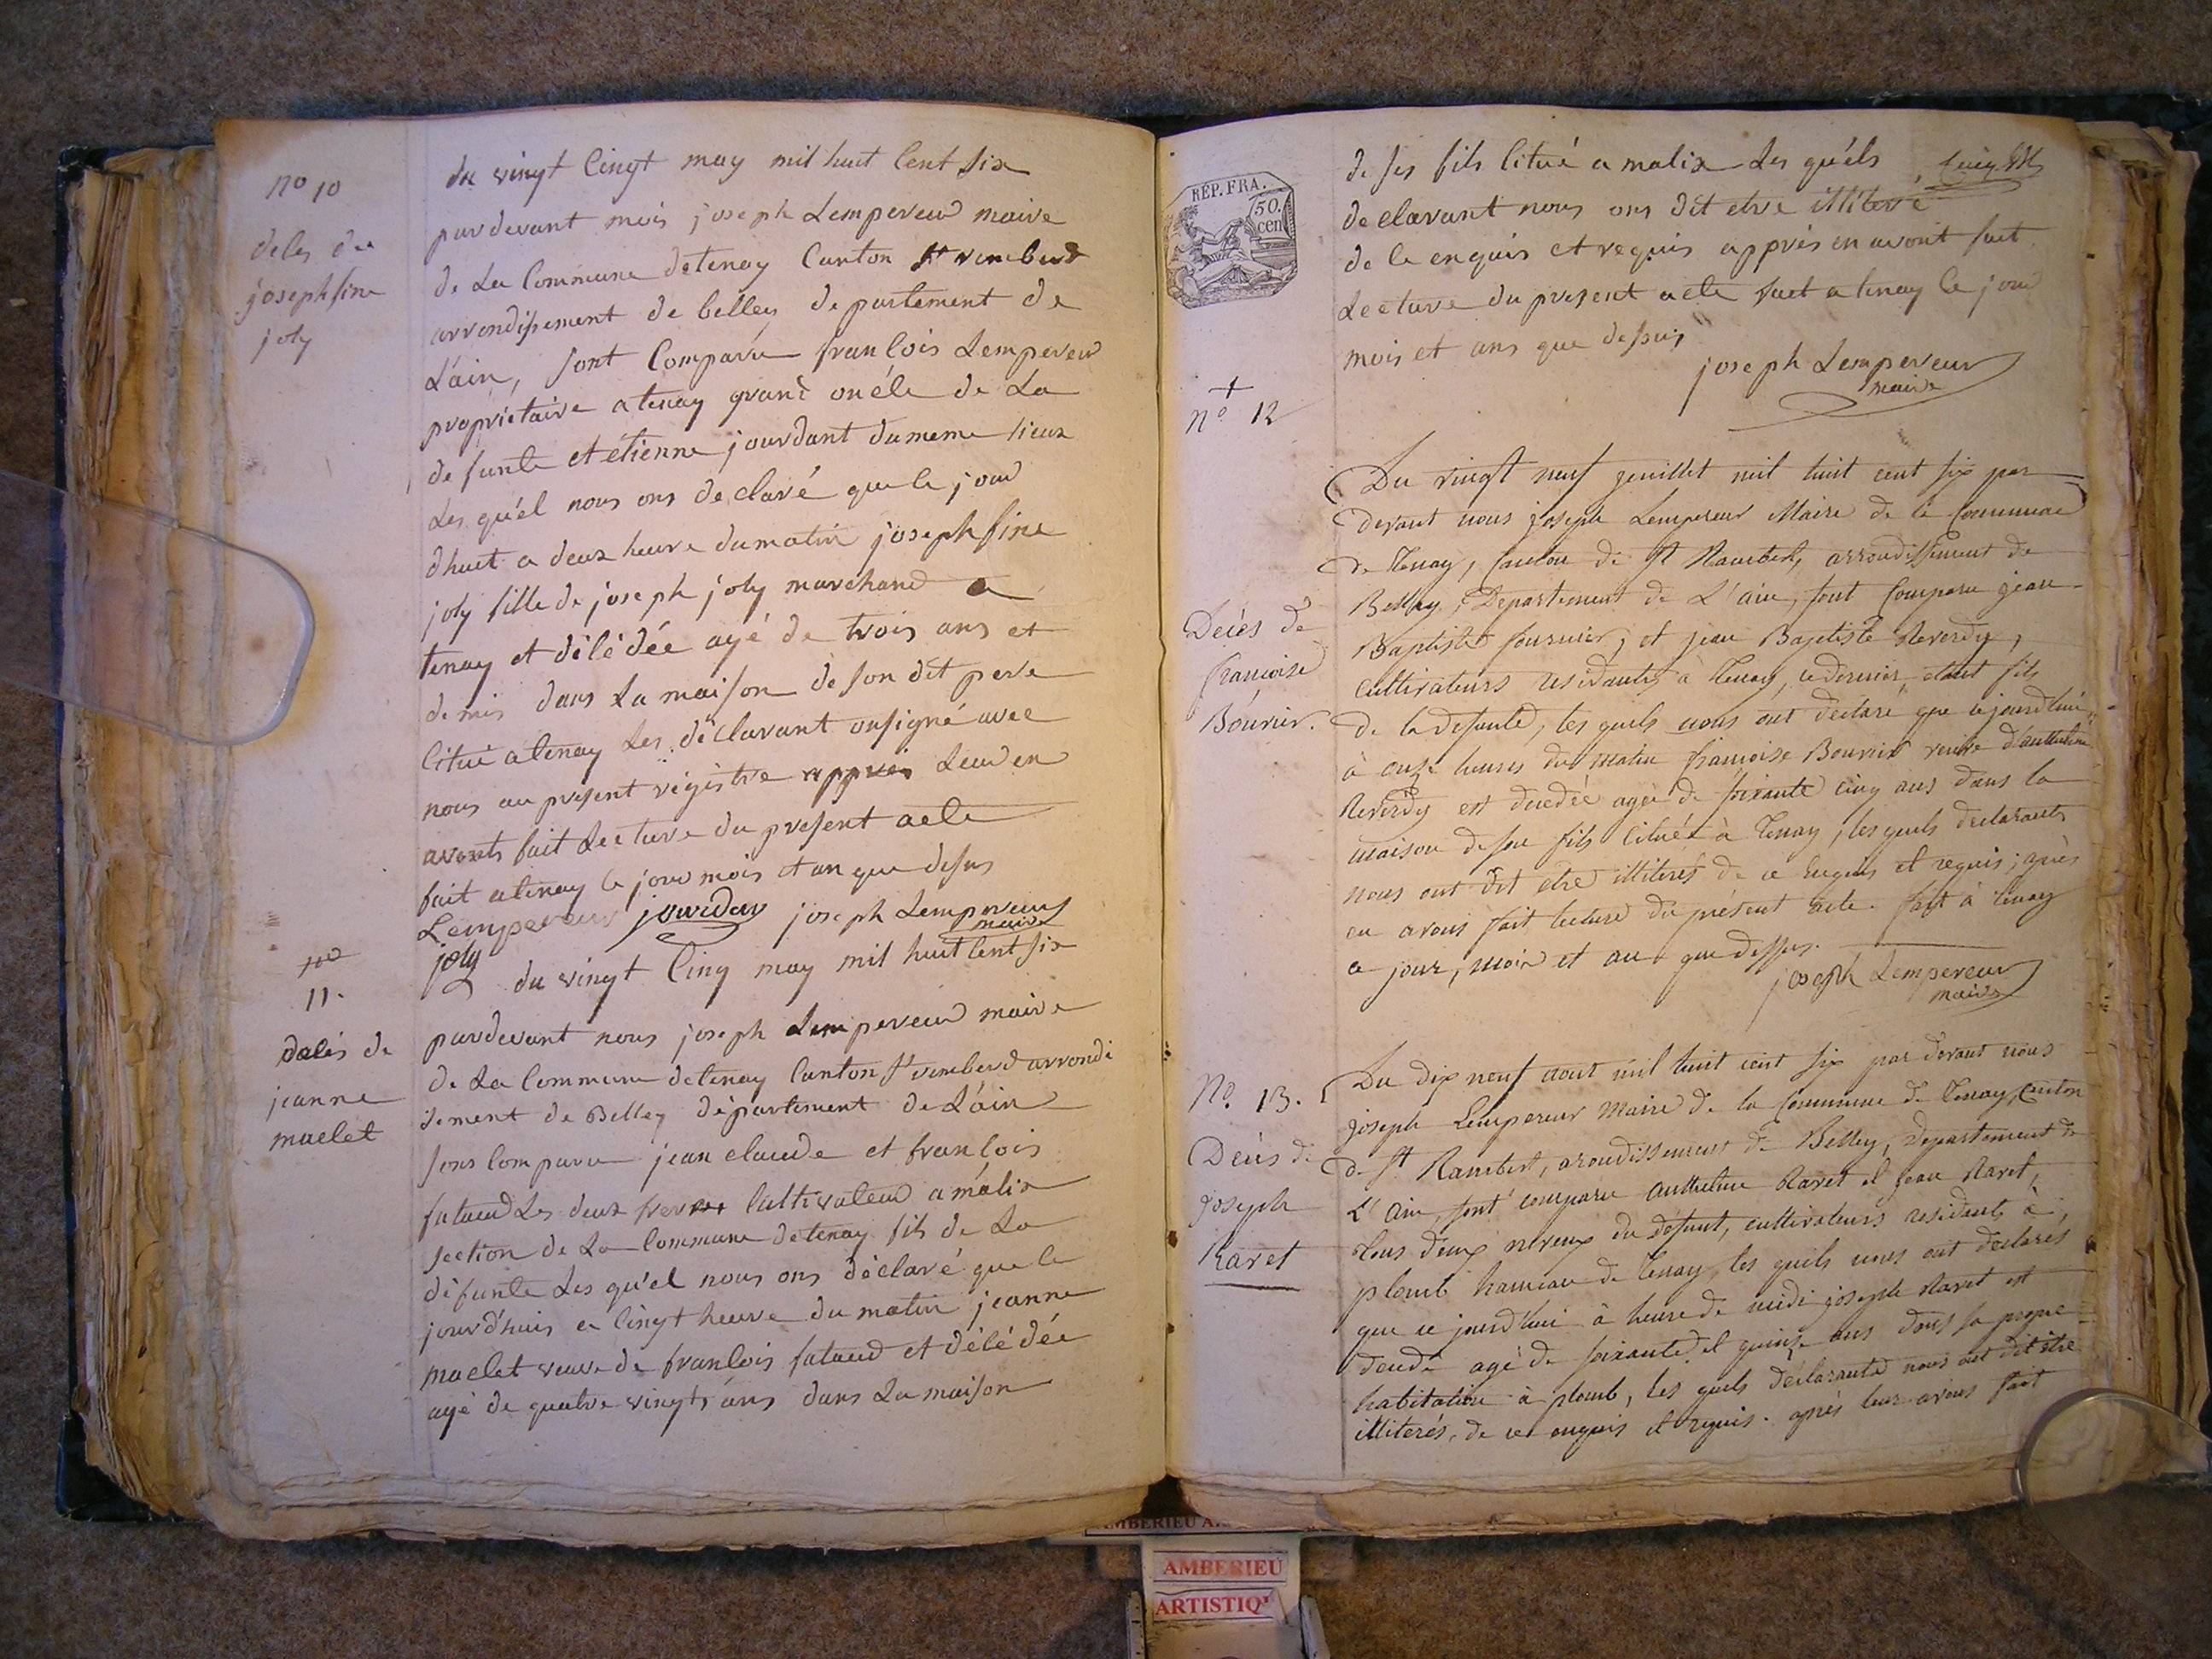 no 10
deles de
josephsine
joly
du vingt Cingt may mil huit Cent Six
pardevant mois joseph Lempereur maire
de La Commune detenay Canton St rembert
arrondissement de belley departement de
L'ain, sont Comparu franCois Lempereur
propriétaire a tenay grand oncle de La
defunte et etienne jourdant dumeme lieux
Les qu'él nous ons declaré que le jour
dhuit a deux heure dumatin josephsine
joly fille de joseph joly marchand a
tenay et déCédée agé de trois ans et
demis dans La maison de son dit pere
Citué atenay Les déclarant onsigné avec
nous au present régistre appres Leur en
avonts fait Lecture du present acte
fait atenay le jour mois et an que desus
Lempereur jourdan joseph Lempereur
maire
joly
no
11.
dalés de
jeanne
maclet
du vingt Cinq may mil huit Cent six
pardevant nous joseph Lempereur maire
de La Commune detenay Canton St rembert arrondi
sement de Belley département de L'ain
sons Comparu jean claude et franCois
Les deux freres Cultivateur a malix
section de La Commune detenay fils de La
défunte Les qu'el nous ons déclaré que le
jourd'huis a Cingt heure du matin jeanne
maclet veuve de franCois et déCédée
agé de quatre vingts ans dans La maison
RÉP. FRA.
50.
cen
de ses fils Citué a malix Les qu'éls
declarant nous ons dit etre illiteré
de le enquis et requis apprés en avont fait
Lecture du present acte fact a tenay le jour
mois et ans que dessus
joseph Lempereur
maire
+
no 12
Décés de
françoise
Bouvier.
Du vingt neuf jeuillet mil huit cent six par
devant nous joseph Lempereur Maire de la Commune
de Tenay, Canton de St Rambert, arrondissement de
Belley, Departement de L'ain, sont Comparu jean-
Baptiste fournier, et jean Baptiste Reverdy,
Cultivateurs residants à Tenay, ce dernier etant fils
de la defunte, les quels nous ont declaré que cejourd'hui
à onze heures du matin françoise Bouvier veuve d'anthelme
Reverdy est decedée agée de soixante cinq ans dans la
maison de son fils Citué à Tenay, les quels declarants
nous ont dit etre illiterés de ce enquis et requis; après
en avons fait lecture du présent acte. fait à Tenay
ce jour, mois et an que dessus.
joseph Lempereur
maire
No. 13.
Décés de
joseph
Ravet
Du dix neuf aout mil huit cent six par devant nous
joseph Lempereur Maire de la Commune de Tenay, Canton
de St Rambert, arondissement de Belley, Departement de
L'Ain, sont comparu anthelme Ravet et jean Ravet,
tous deux neveux du défunt, cultivateurs residents à
plomb hameau de Tenay, les quels nous ont declarés
que ce jourd'hui à heure de midi joseph Ravet est
decedé agé de soixante et quinze ans dans sa propre
habitation à plomb, les quels déclarants nous ont dit etre
illiterés, de ce enquis et requis. après leur avons fait
AMBERIEU
AMBERIEU
ARTISTIQ